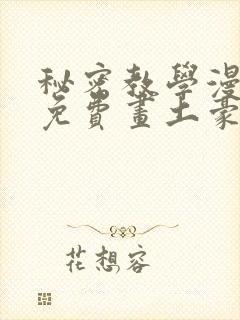 秘密教學漫
免費畫土豪
花想容